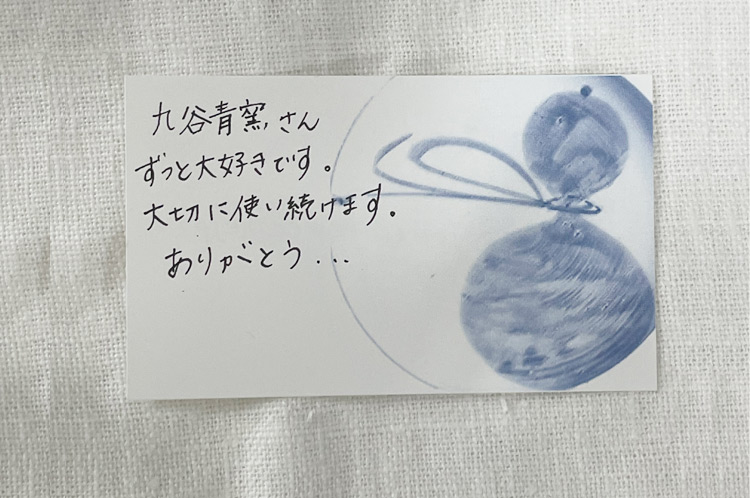 九谷青窯さん
ずっと大好きです。
大切に使い続けます。
ありがとう...